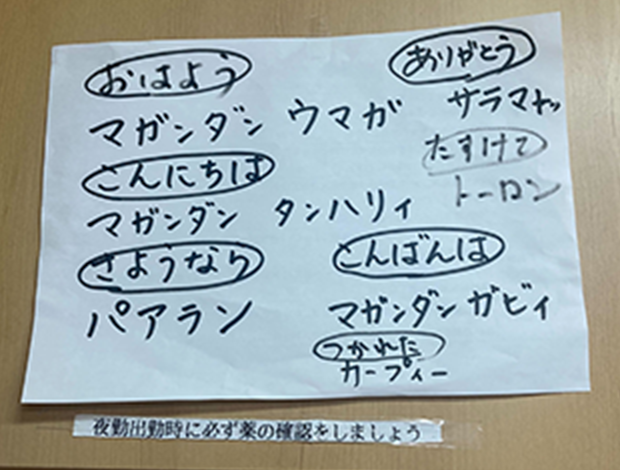 おはよう
マガンダン ウマガ
こんにちは
マガンダン タンハリィ
さようなら
パアラン
ありがとう
サラマッ
たすけて
トーロン
こんばんは
マガンダン ガビィ
つかれた
カープィー
夜勤出勤時に必ず薬の確認をしましょう